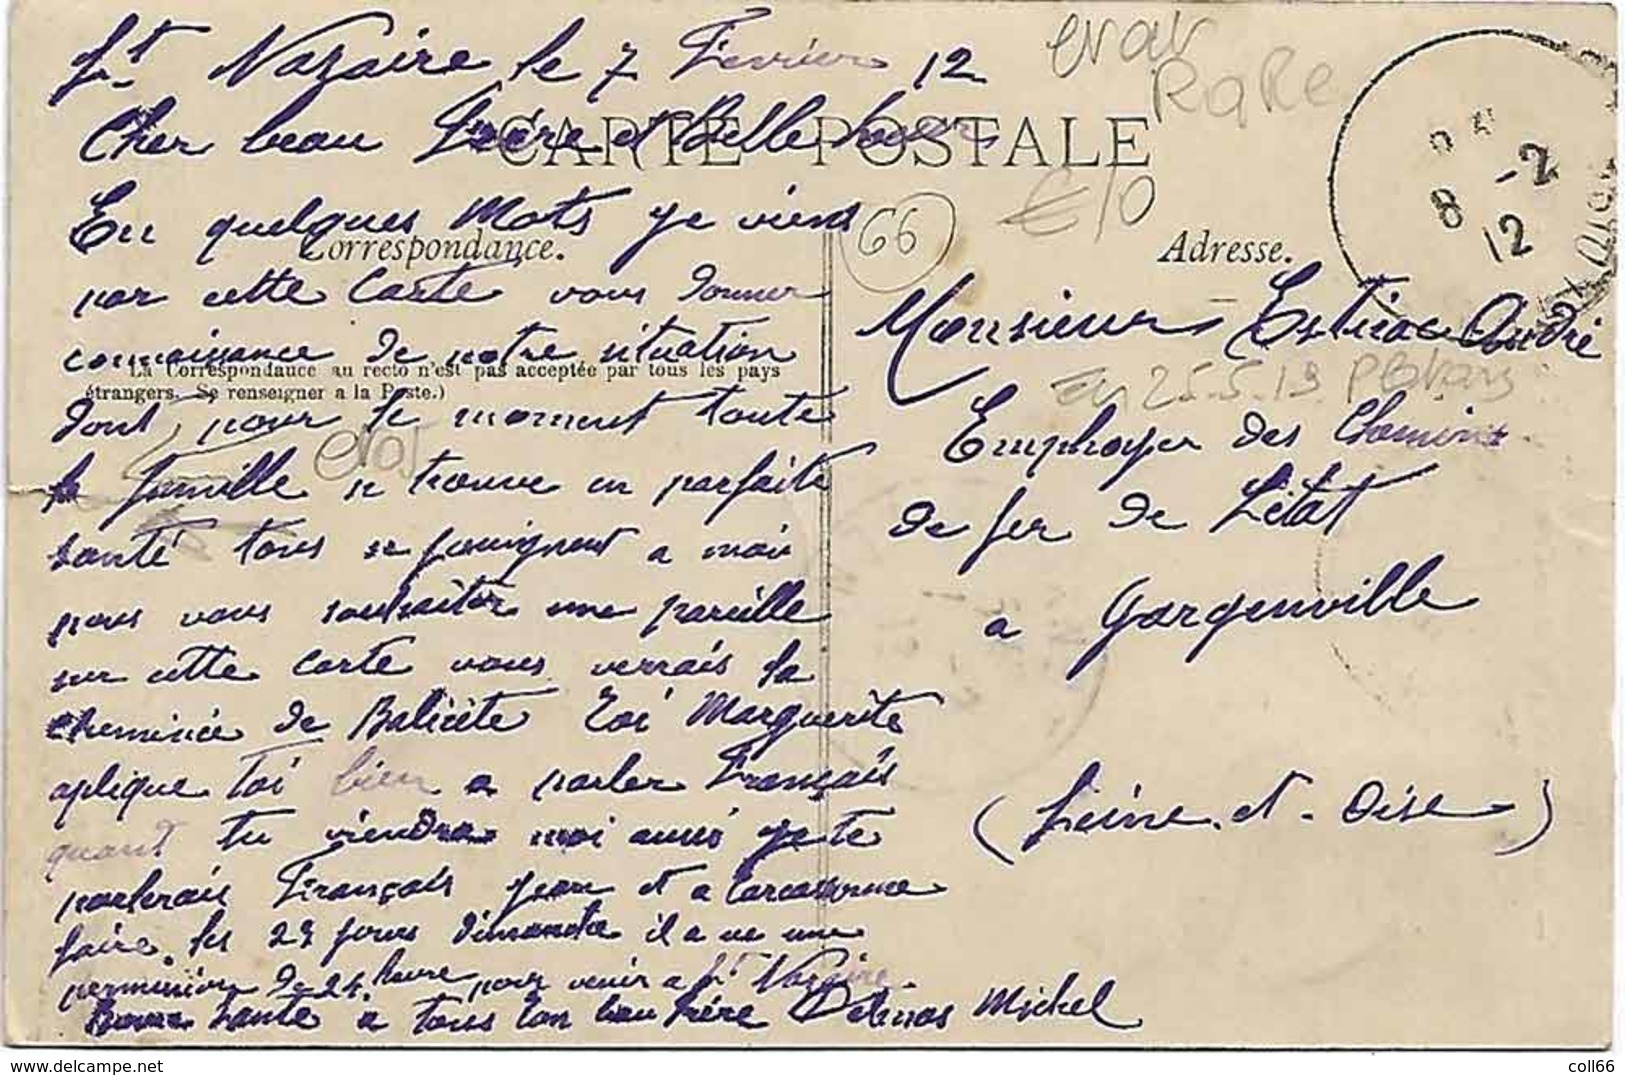 St Nazaire le 7 Fevrier 12
Cher beau Frére et Belle Soeur
CARTE POSTALE
En quelques Mots je viens
Correspondance.
par cette Carte vous donner
connaissance de notre situation
La Correspondance au recto n'est pas acceptée par tous les pays
étrangers. Se renseigner a la Poste.)
dont pour le moment toute
la famille se trouve en parfaite
santé tous se joignent a moi
pour vous souhaiter une pareille
sur cette Carte vous verrais la
cheminée de Toi Marguerite
aplique Toi bien a parler Français
quant tu viendra moi aussi je te
parlerais Français Jean et a Carcassonne
faire les 23 jours dimanche il a ue une
permission de 24 heure pour venir a St Nazaire
Bonne Santé a tous Ton beau frére Delmas Michel
erar
RaRe
€10
66
Adresse.
8 -2
12
Monsieur Estirac André
En 25.5.19
Employer des Chemins
de fer de Létat
a Gargenville
(Seine et Oise)
coll66